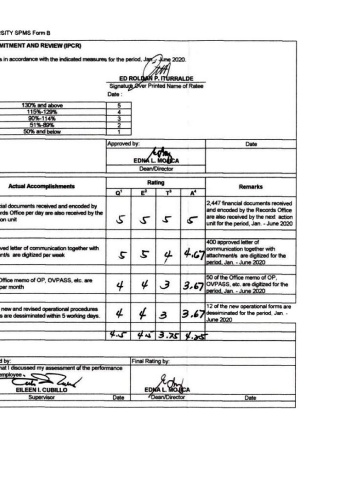 SITY SPMS Form B
MITMENT AND REVIEW (IPCR)
s in accordance with the indicated measures for the period, Jan - June 2020.
ED ROLDAN P. ITURRALDE
Signature Over Printed Name of Ratee
Date :
130% and above 5
115%-129% 4
90%-114% 3
51%-89% 2
50% and below 1
Approved by: Date
EDNA L. MOJICA
Dean/Director
Actual Accomplishments Rating Remarks
Q¹ E² T³ A⁴
cial documents received and encoded by
rds Office per day are also received by the
on unit
5 5 5 5
2,447 financial documents received
and encoded by the Records Office
are also received by the next action
unit for the period, Jan. - June 2020
ved letter of communication together with
ent/s are digitized per week
5 5 4 4.67
400 approved letter of
communication together with
attachment/s are digitized for the
period, Jan. - June 2020
Office memo of OP, OVPASS, etc. are
per month
4 4 3 3.67
50 of the Office memo of OP,
OVPASS, etc. are digitized for the
period, Jan. - June 2020
new and revised operational procedures
s are desseminated within 5 working days.
4 4 3 3.67
12 of the new operational forms are
desseminated for the period, Jan. -
June 2020
4.5 4.5 3.75
d by: Final Rating by:
hat I discussed my assessment of the performance
employee
EILEEN I. CUBILLO EDNA L. MOJICA
Supervisor Date Dean/Director Date